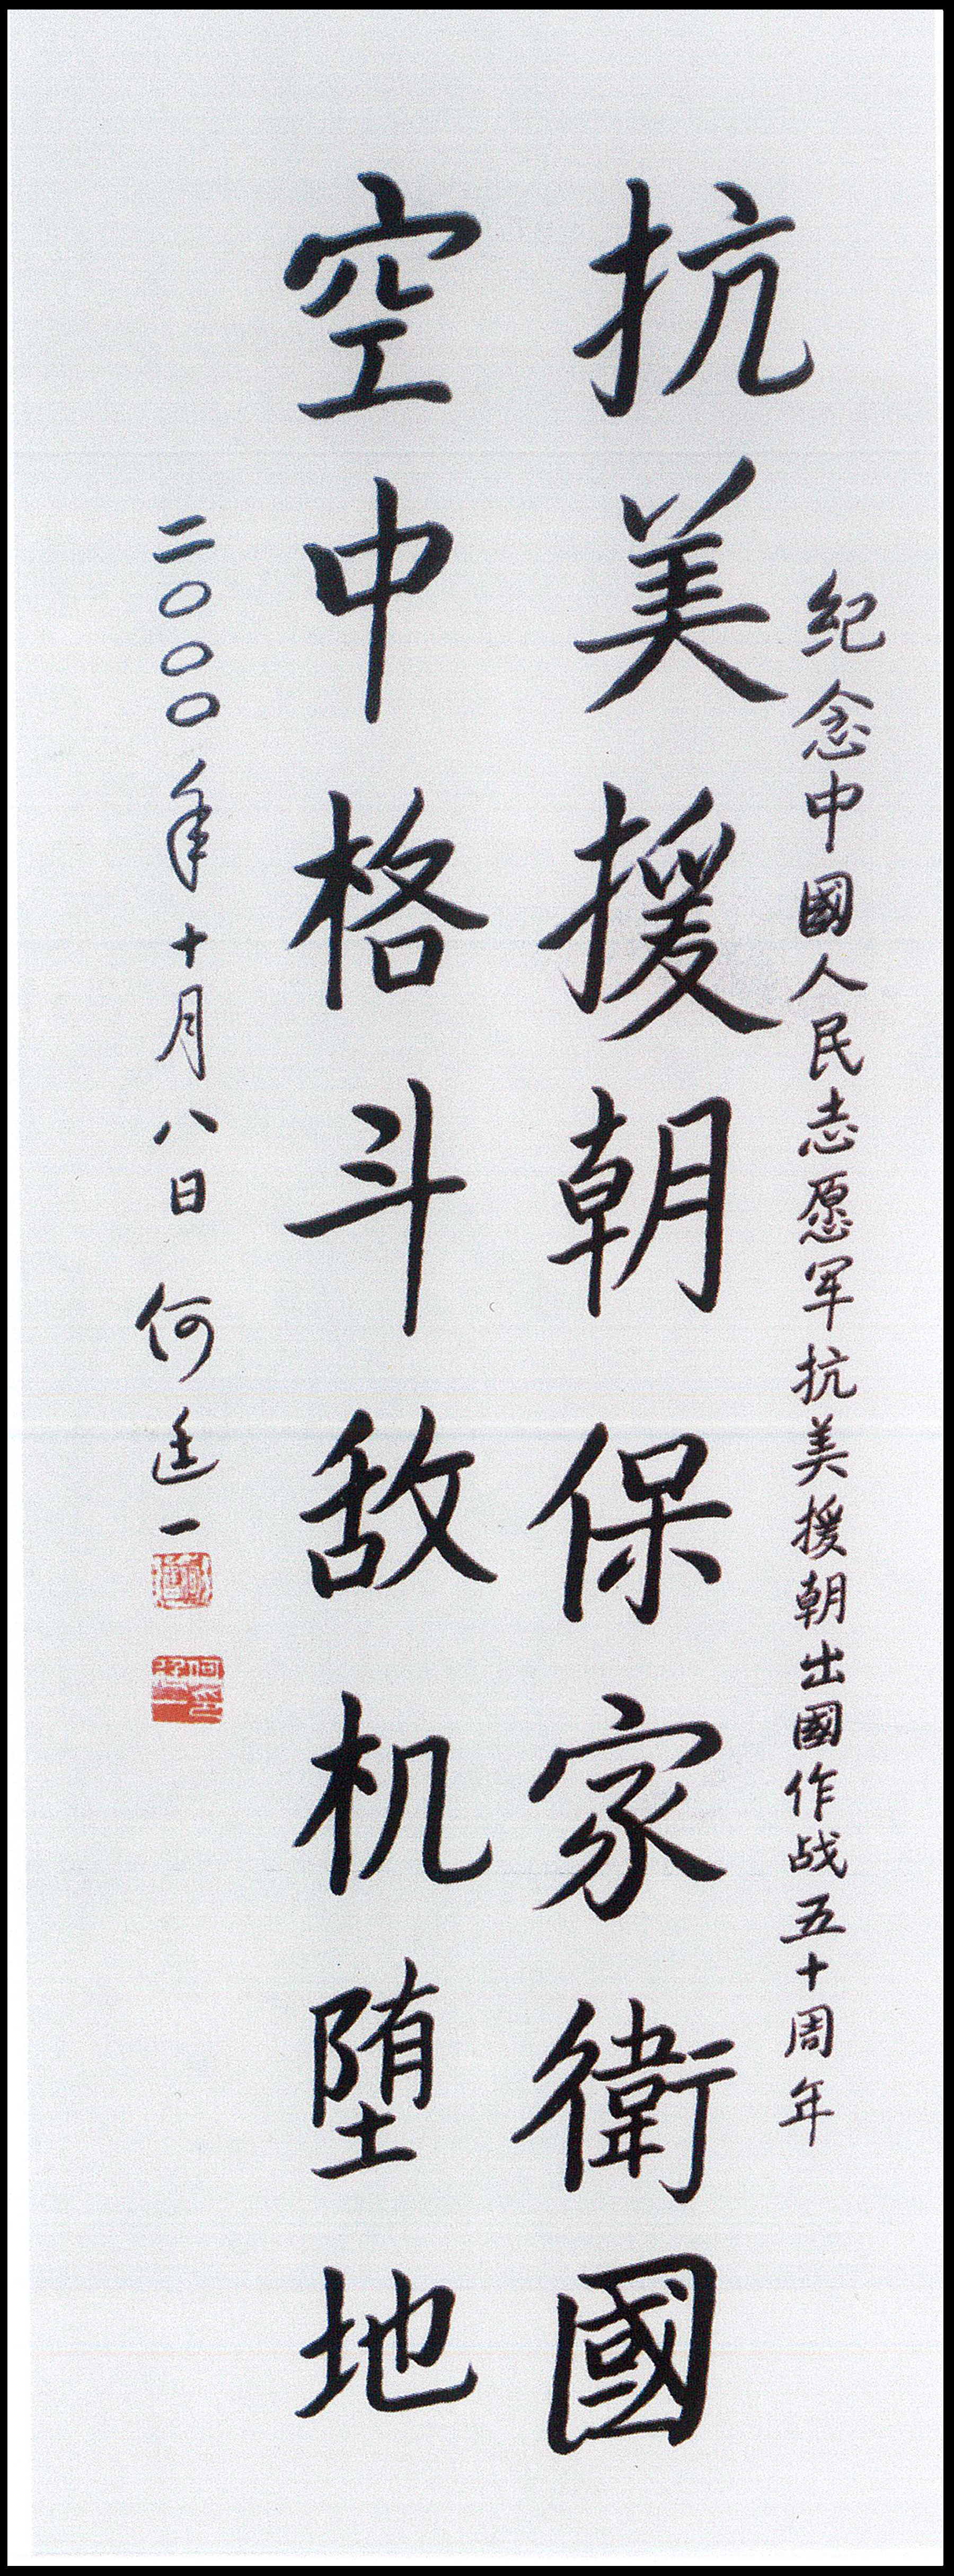 纪念中國人民志愿军抗美援朝出國作战五十周年
抗美援朝保家衛國
空中格斗敌机堕地
二〇〇〇年十月八日 何廷一